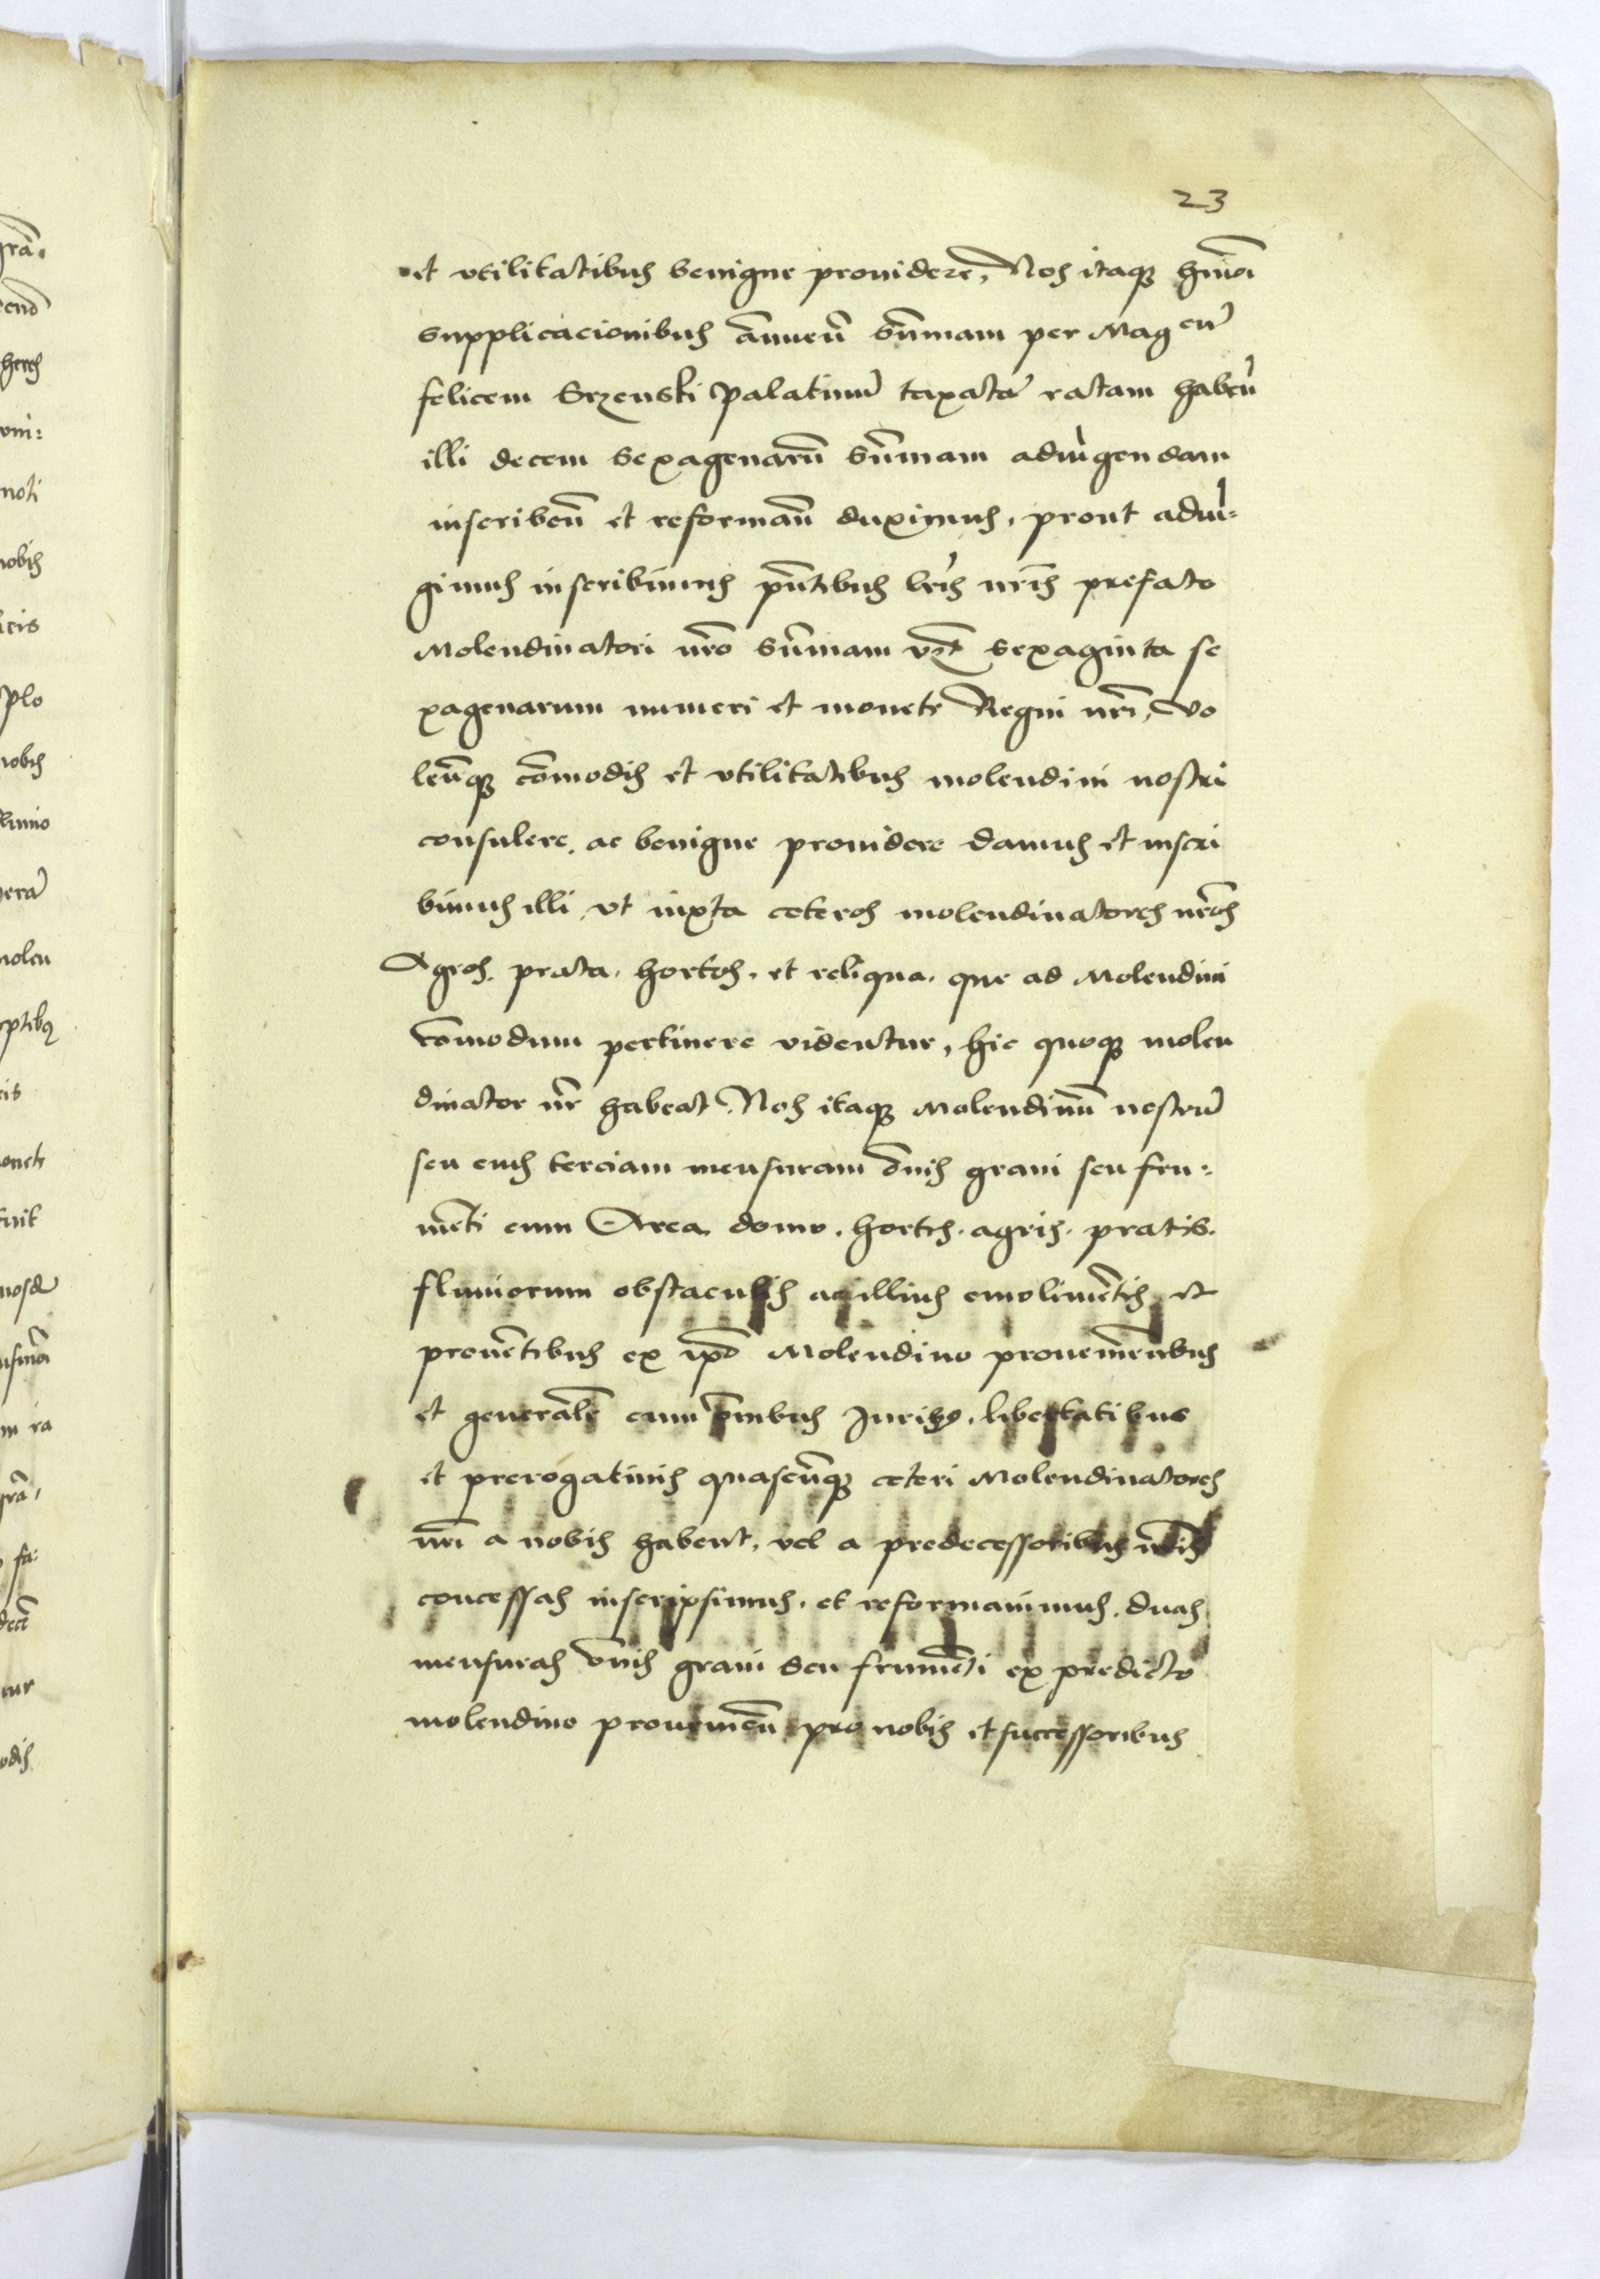 23
et vtilitatibus benigne prouidere, Nos itaqz hmōi
supplicacionibus ānuen̄ sūmam per Mag cū
felicem Srzenski palatinū taxatā ratam haben̄
illi decem sexagenarū sūmam adiūgendam
inscriben̄ et reforman̄ duximus, prout adiū=
gimus inscribimus pn̄tibus lr̄is nr̄is prefato
Molendinatori nr̄o sūmam vz̄ sexaginta se
xagenarum numeri et monete Regni nr̄i, vo
len̄qz cōmodis et vtilitatibus molendini nostri
consulere, ac benigne prouidere damus et inscri
bimus illi, vt iuxta ceteros molendinatores nr̄os
Agros, prata, hortos, et reliqua, que ad Molendini
cōmodum pertinere videntur, hic quoqz molen
dinator nr̄ habeat, Nos itaqz Molendinū nostrū
seu eius terciam mensuram ōnis grani seu fru=
mēti cum Area domo, hortis, agris, pratis,
fluuiorum obstaculis ac illius emolimētis et
prouētibus ex ip̄o Molendino prouenientibus
et generalr̄ cum ōnibus Juribus, libertatibus
et prerogatiuis quascūqz ceteri Molendinatores
nr̄i a nobis habent, vel a predecessoribus nr̄is
concessas inscripsimus, et reformauimus, duas
mensuras ōnis grani seu frumēti ex predicto
molendino prouenien̄ pro nobis et successoribus